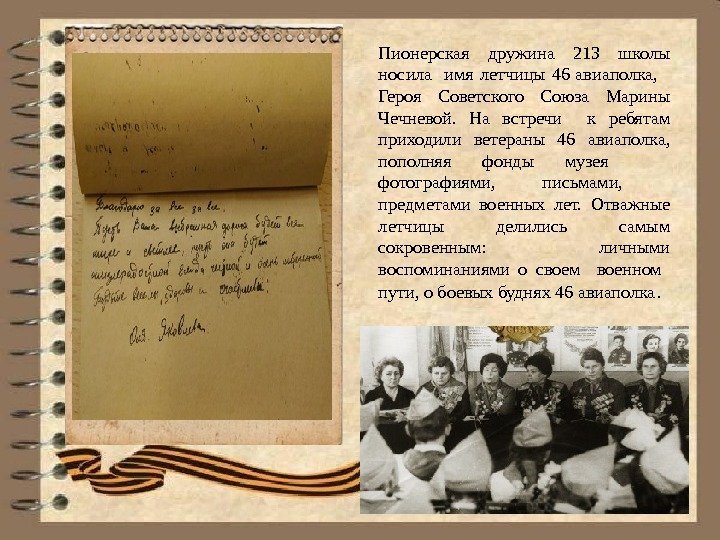 Благодарю за все за все.
Пусть Ваша выбранная дорога будет вся
шире и светлее, пусть она будет
жизнерадостной всегда и очень
Будьте веселы, здоровы и счастливы!
Оля Яковлева
Пионерская дружина 213 школы
носила имя летчицы 46 авиаполка,
Героя Советского Союза Марины
Чечневой. На встречи к ребятам
приходили ветераны 46 авиаполка,
пополняя фонды музея
фотографиями, письмами,
предметами военных лет. Отважные
летчицы делились самым
сокровенным: личными
воспоминаниями о своем военном
пути, о боевых буднях 46 авиаполка.